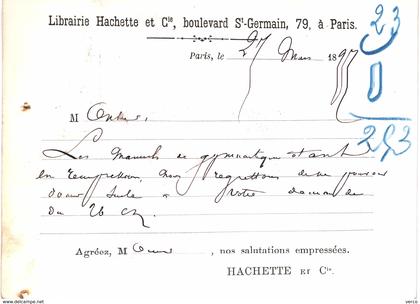 Librairie Hachette et Cie, boulevard St-Germain, 79, à Paris.
23
Paris, le 27 Mars 1897
0
M
253
Les Manuels de gymnastique étant
en réimpression, nous regrettons de ne pouvoir
donner suite à votre demande
du 26 ct.
Agréez, M , nos salutations empressées.
HACHETTE ET Cie.